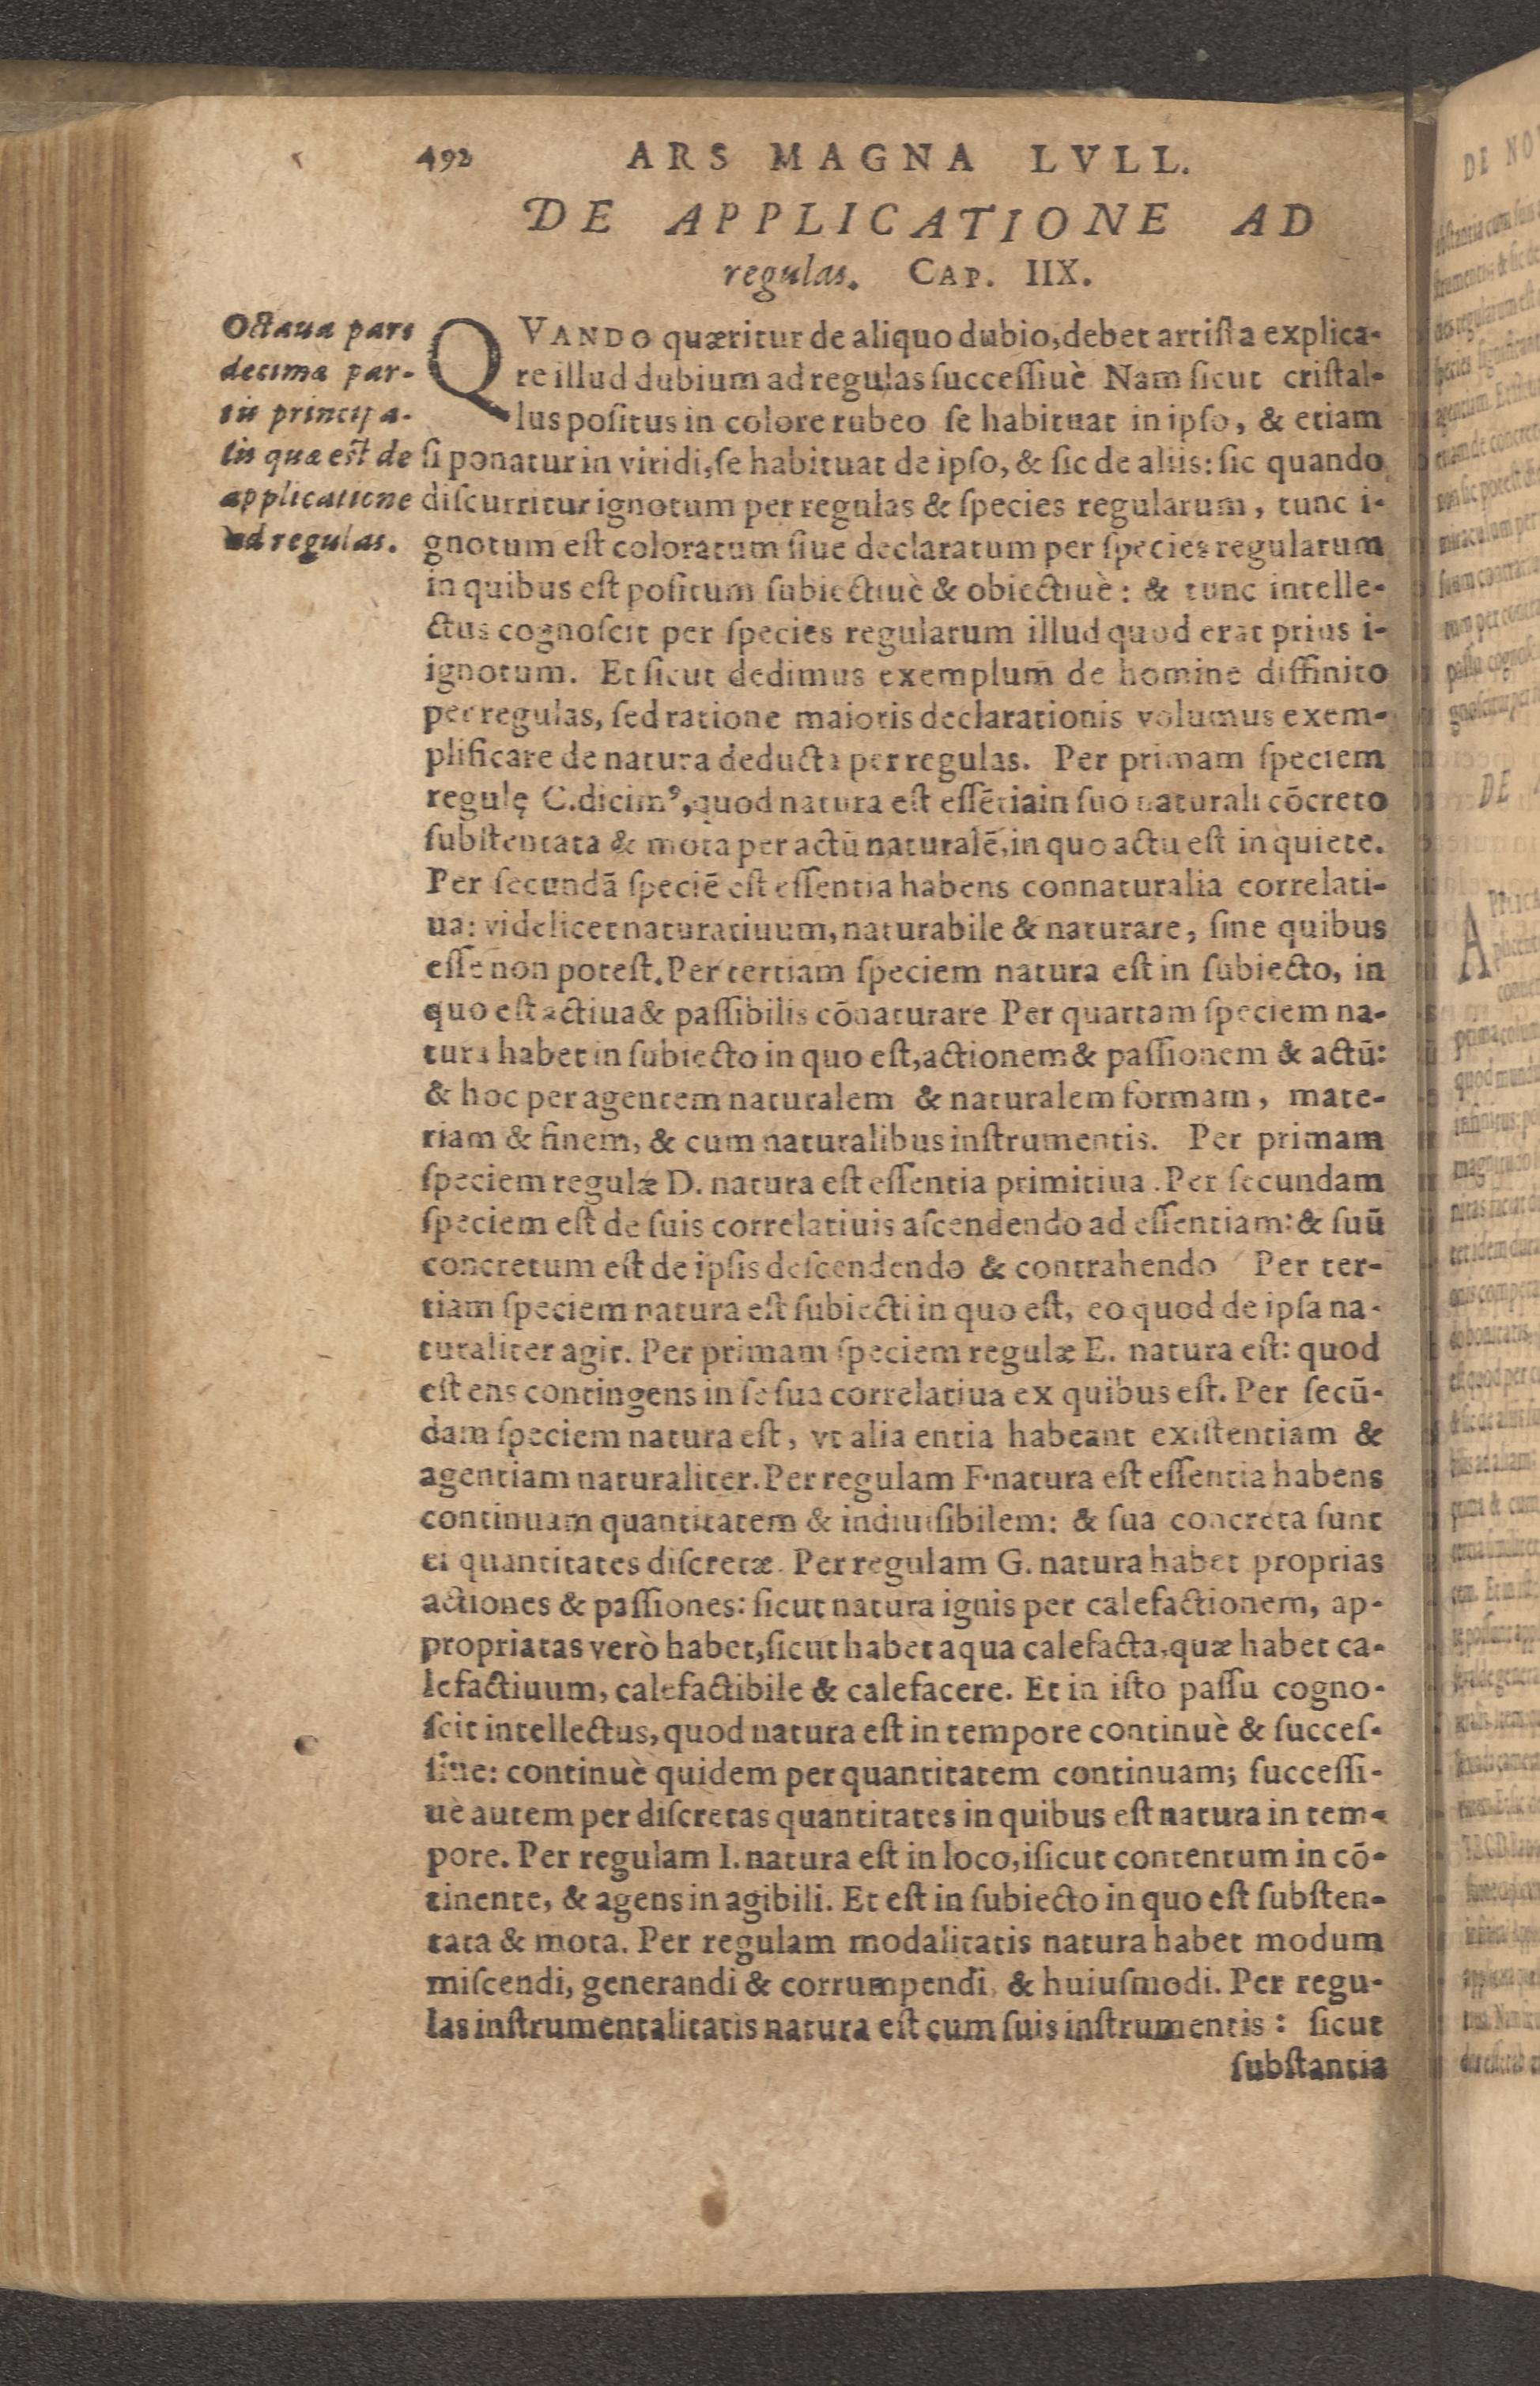 492 ARS MAGNA LVLL.
DE APPLICATIONE AD
regulas. CAP. IIX.
Octaua pars
decimæ par-
tis principa-
lis quæ est de
applicatione
ad regulas.
QVANDO quæritur de aliquo dubio, debet artiſta explica-
re illud dubium ad regulas ſucceſſiuè Nam ſicut criſtal-
lus poſitus in colore rubeo ſe habituat in ipſo, & etiam
ſi ponatur in viridi, ſe habituat de ipſo, & ſic de aliis: ſic quando
diſcurritur ignotum per regulas & ſpecies regularum, tunc i-
gnotum eſt coloratum ſiue declaratum per ſpecies regularum
in quibus eſt poſitum ſubiectiuè & obiectiuè: & tunc intelle-
ctus cognoſcit per ſpecies regularum illud quod erat prius i-
ignotum. Et ſicut dedimus exemplum de homine diffinito
per regulas, ſed ratione maioris declarationis volumus exem-
plificare de natura deducta per regulas. Per primam ſpeciem
regulę C. dicimꝰ, quod natura eſt eſſẽtia in ſuo naturali cõcreto
ſubſtentata & mota per actũ naturalẽ, in quo actu eſt in quiete.
Per ſecundã ſpeciẽ eſt eſſentia habens connaturalia correlati-
ua: videlicet naturatiuum, naturabile & naturare, ſine quibus
eſſe non poteſt. Per tertiam ſpeciem natura eſt in ſubiecto, in
quo eſt actiua & paſſibilis cõnaturare Per quartam ſpeciem na-
tura habet in ſubiecto in quo eſt, actionem & paſſionem & actũ:
& hoc per agentem naturalem & naturalem formam, mate-
riam & finem, & cum naturalibus inſtrumentis. Per primam
ſpeciem regulæ D. natura eſt eſſentia primitiua. Per ſecundam
ſpeciem eſt de ſuis correlatiuis aſcendendo ad eſſentiam: & ſuũ
concretum eſt de ipſis deſcendendo & contrahendo Per ter-
tiam ſpeciem natura eſt ſubiecti in quo eſt, eo quod de ipſa na-
turaliter agit. Per primam ſpeciem regulæ E. natura eſt: quod
eſt ens contingens in ſe ſua correlatiua ex quibus eſt. Per ſecũ-
dam ſpeciem natura eſt, vt alia entia habeant exiſtentiam &
agentiam naturaliter. Per regulam F. natura eſt eſſentia habens
continuam quantitatem & indiuiſibilem: & ſua concreta ſunt
ei quantitates diſcretæ. Per regulam G. natura habet proprias
actiones & paſſiones: ſicut natura ignis per calefactionem, ap-
propriatas verò habet, ſicut habet aqua calefacta, quæ habet ca-
lefactiuum, calefactibile & calefacere. Et in iſto paſſu cogno-
ſcit intellectus, quod natura eſt in tempore continuè & ſucceſ-
ſiue: continuè quidem per quantitatem continuam; ſucceſſi-
uè autem per diſcretas quantitates in quibus eſt natura in tem-
pore. Per regulam I. natura eſt in loco, iſicut contentum in cõ-
tinente, & agens in agibili. Et eſt in ſubiecto in quo eſt ſubſten-
tata & mota. Per regulam modalitatis natura habet modum
miſcendi, generandi & corrumpendi, & huiuſmodi. Per regu-
las inſtrumentalitatis natura eſt cum ſuis inſtrumentis: ſicut
ſubſtantia